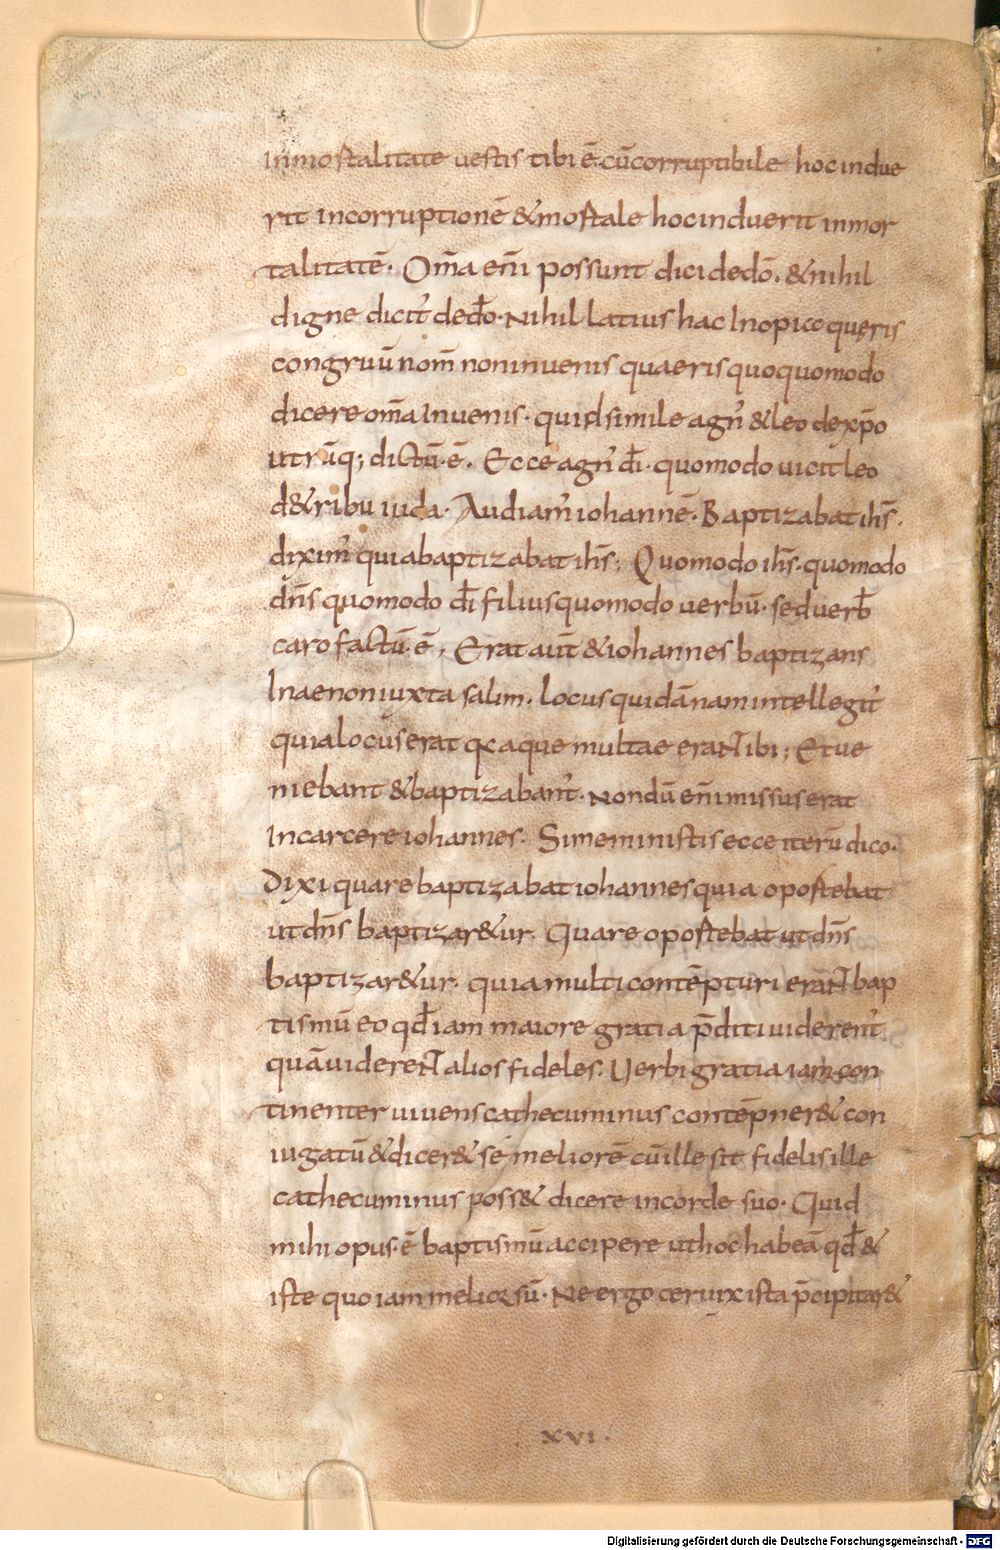 inmortalitate uestis tibi ē. cū corruptibile hoc indue
rit incorruptionē & mortale hoc induerit inmor
talitatē. Om̄a eni̅ possunt dici de dō. & nihil
digne dicit᷑ de dō. Nihil latius hac Inopico quęris
congruū nom̄ non inuenis quaeris quoquomodo
dicere om̄a Inuenis. quid simile agn᷒ & leo de xp̄o
utrūq; dictū ē. Ecce agn᷒ dī. quomodo uicit leo
d&ribu iuda. Audiam᷒ iohannē. Baptizabat ih̄s.
dixim᷒ quia baptizabat ih̄s; Quomodo ih̄s. quomodo
dn̄s quomodo dī filius quomodo uerbū. sed uerb̄
caro factū ē. Erat aūt & iohannes baptizans
In aenon iuxta salim. locus quidā nam intellegit᷑
quia locus erat qc aque multae erant ibi; Et ue
niebant & baptizabant᷑. Nondū eni̅ missus erat
In carcere iohannes. Si meministis ecce iterū dico.
Dixi quare baptizabat iohannes quia oportebat
ut dn̄s baptizar&ur. Quare oportebat ut dn̄s
baptizar&ur. quia multi contēpturi erānt bap
tismū eo qd̄ iam maiore gratia p̄diti uiderent᷑
quā uiderent alios fideles. Uerbi gratia iam con
tinenter uiuens cathecuminus contēpner& con
iugatū & dicer& sé meliorē cū ille sit fidelis ille
cathecuminus poss& dicere in corde suo. Quid
mihi opus ē baptismū accipere ut hoc habeā qd̄ &
iste quo iam melior sū. Ne ergo ceruix ista p̄cipitar&
xvi.
Digitalisierung gefördert durch die Deutsche Forschungsgemeinschaft - DFG